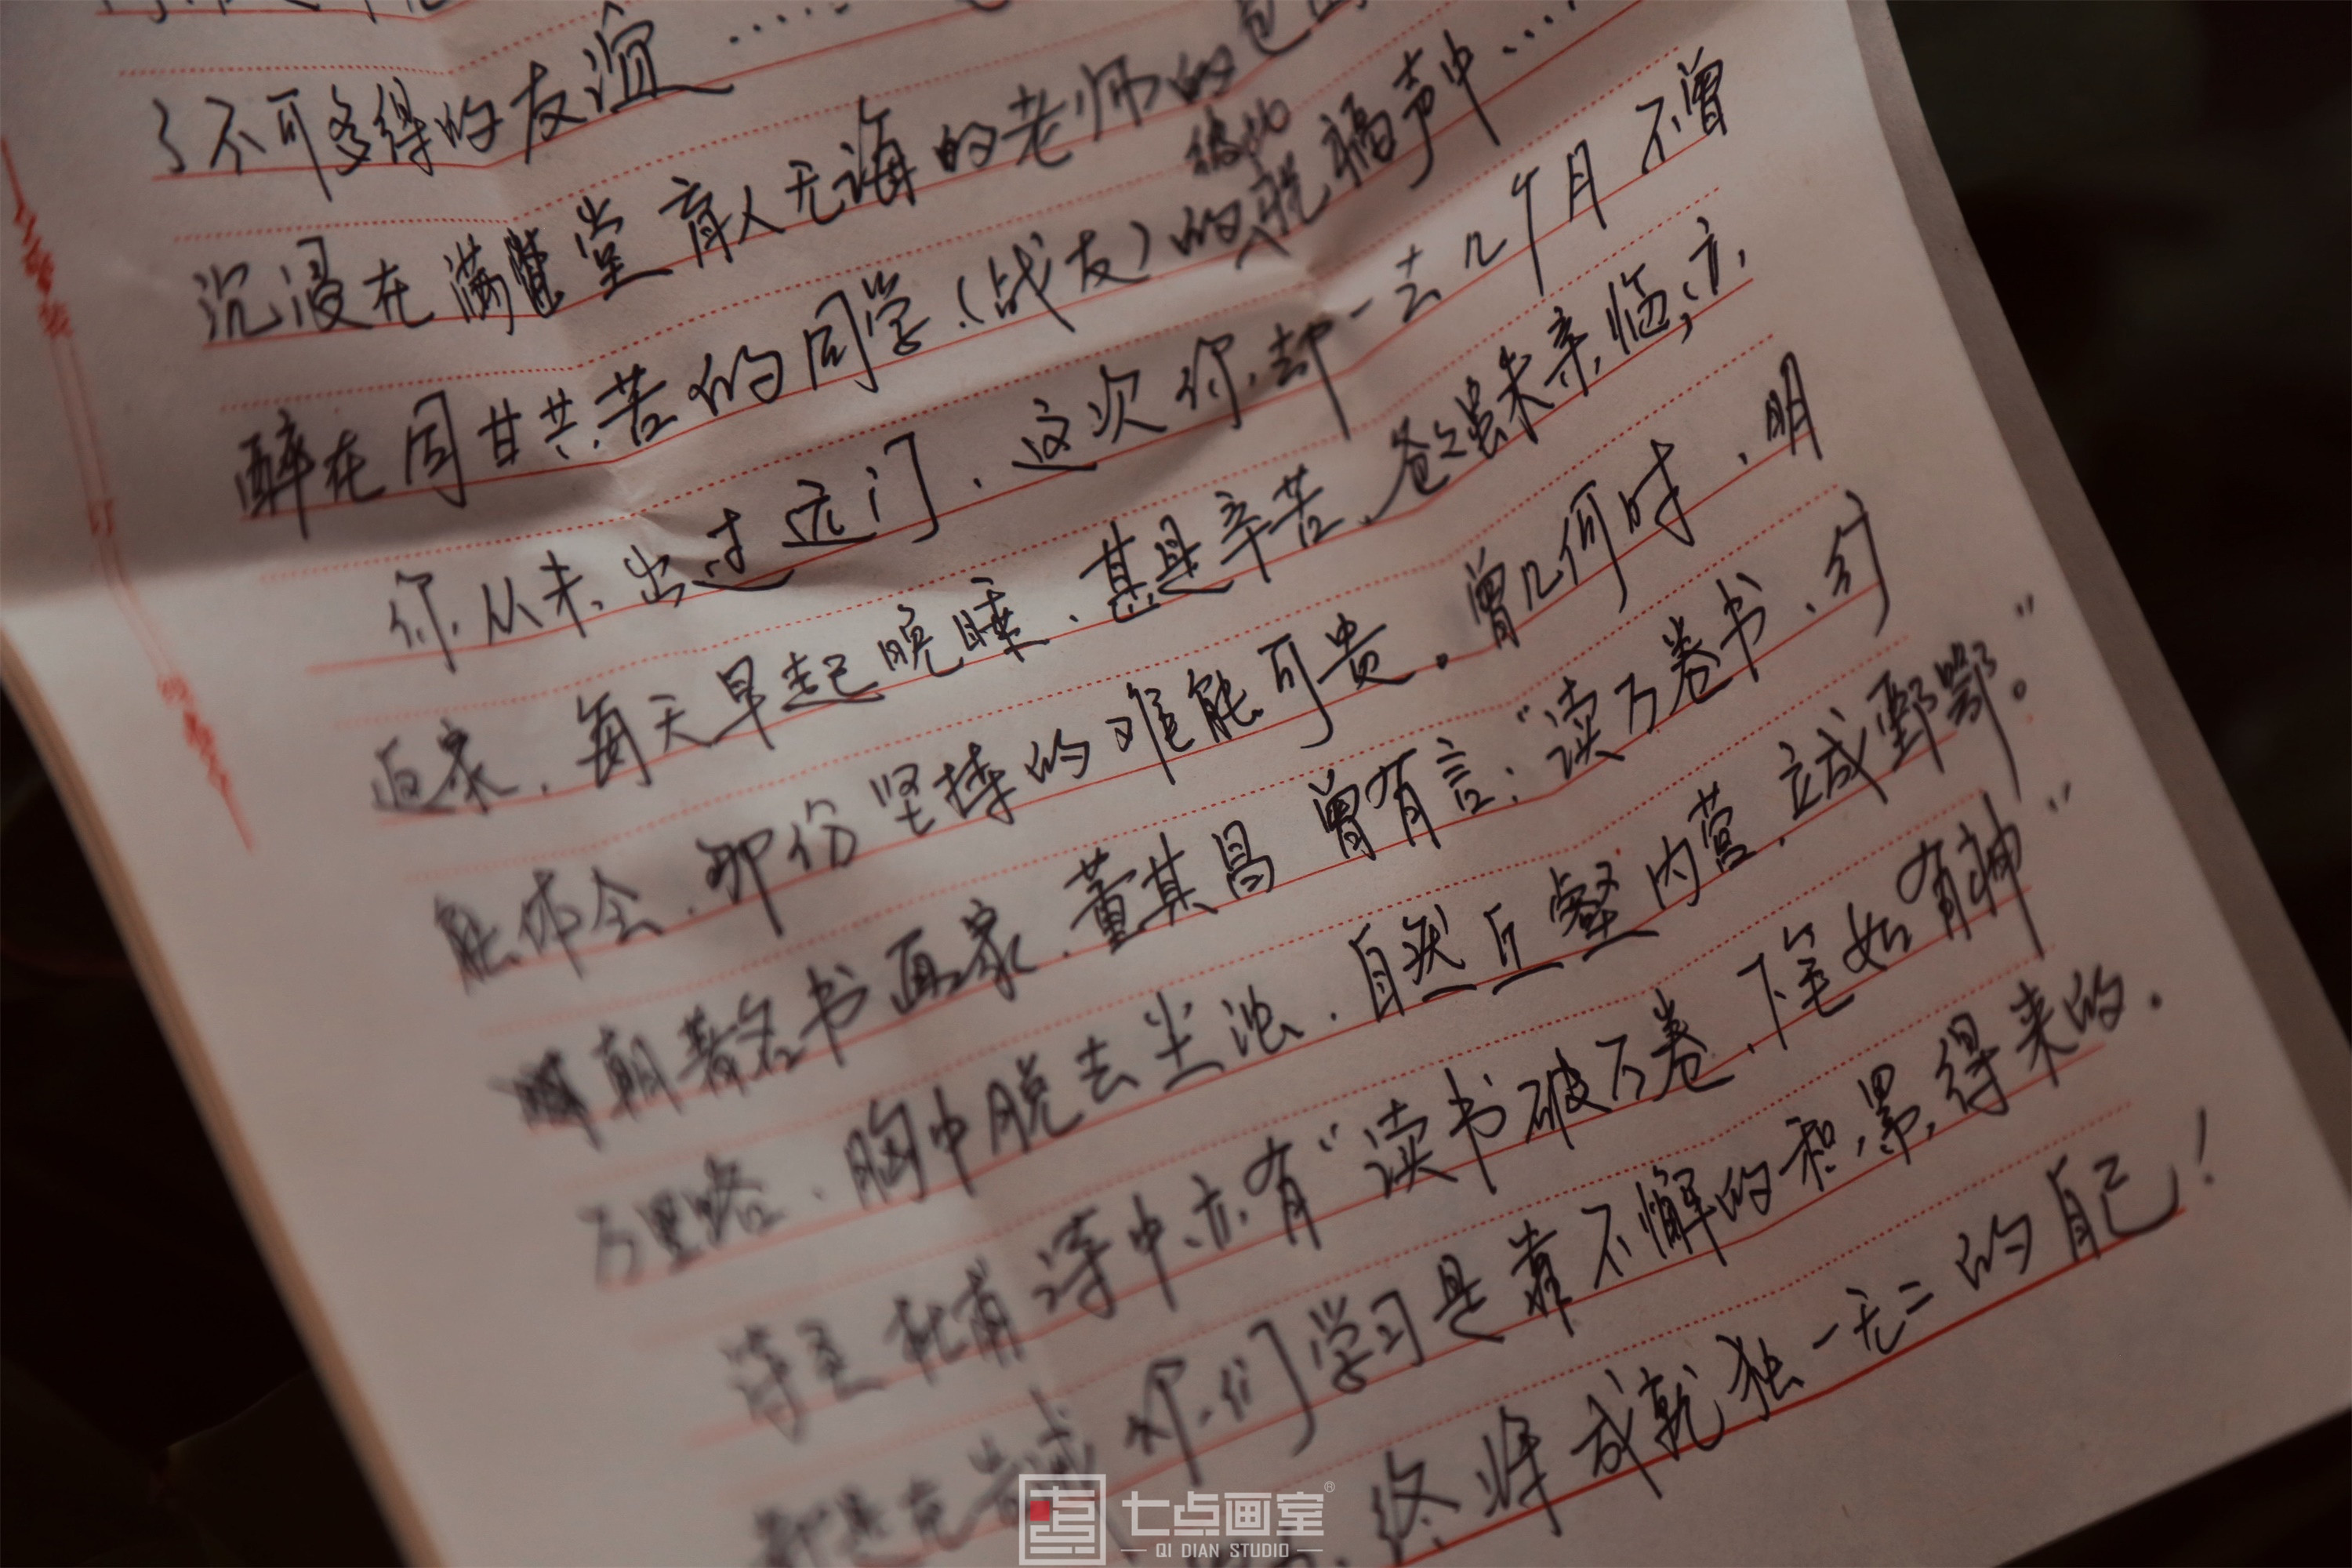 了不可多得的友谊……
沉浸在满堂育人无诲的老师的
醉在同甘共苦的同学(战友)的彼此鼓声中……
你从未出过远门、这次你却一去几个月不曾
返家、每天早起晚睡、甚是辛苦、爸爸虽未亲临,亦
能体会、那份坚持的难能可贵。曾几何时、明
朝著名书画家、董其昌曾有言:“读万卷书、行
万里路、胸中脱去尘浊、自然丘壑内营、立成鄄鄂。”
诗圣杜甫诗中亦有“读书破万卷、下笔如有神”
都是在告诫你们学习是靠不懈的积累得来的.
终将成就独一无二的自己!
七点画室®
QI DIAN STUDIO